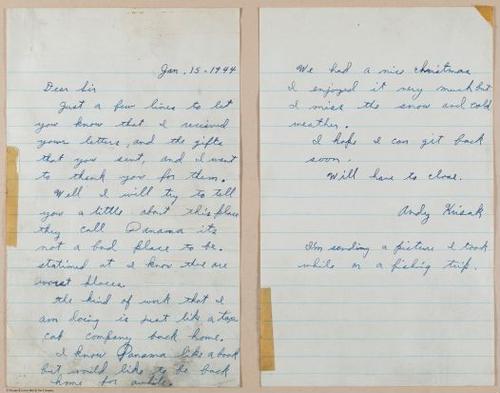 Jan. 15-1944
Dear Sir
Just a few lines to let
you know that I recieved
your letters, and the gifts
that you sent, and I want
to thank you for them.
Well I will try to tell
you a little about this place
they call Panama its
not a bad place to be
stationed at I know there are
worst places.
the kind of work that I
am doing is just like a taxi
cab company back home.
I know Panama like a book
but would like to be back
home for awhile.
We had a nice christmas
I enjoyed it very much but
I miss the snow and cold
weather.
I hope I can get back
soon.
Will have to close.
Andy Krisak
I'm sending a picture I took
while on a fishing trip.